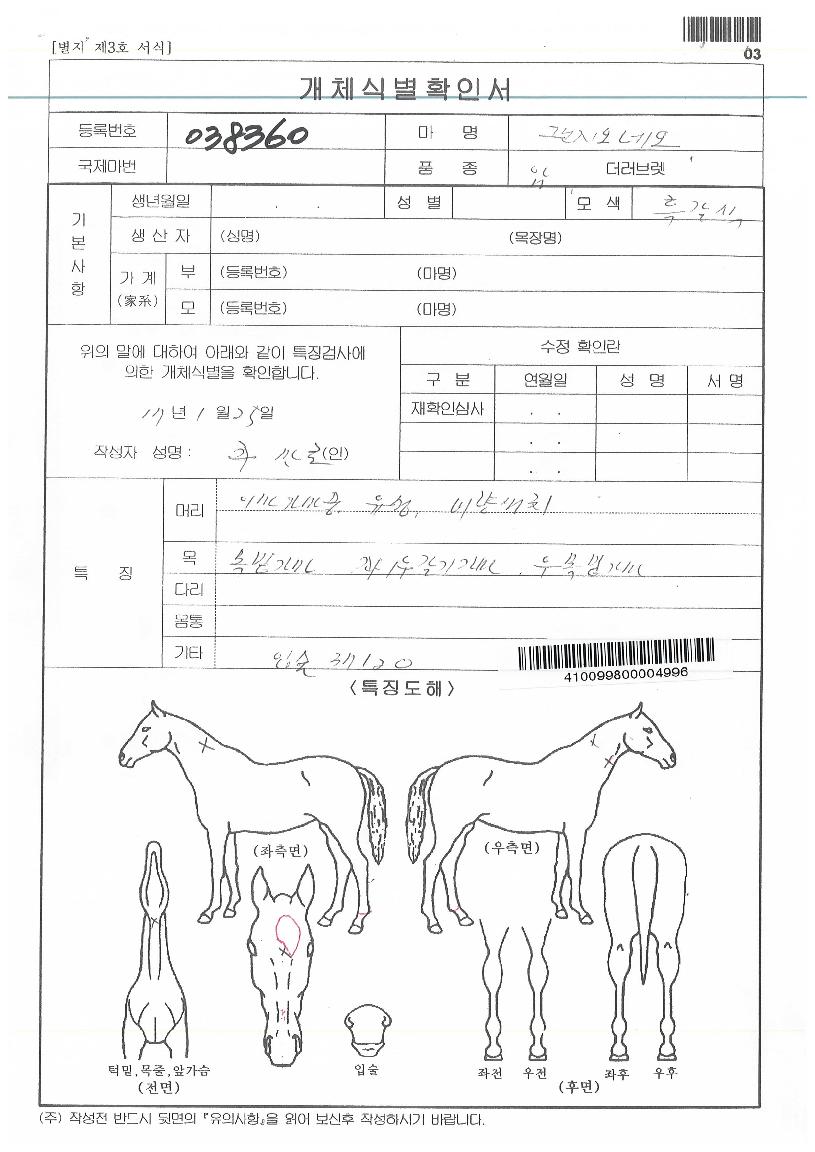 [별지 제3호 서식]
03
개체식별확인서
등록번호 038360 마 명
국제마번 품 종 암 더러브렛
기본사항
생년월일 . . 성 별 모 색 흑갈색
생 산 자 (성명) (목장명)
가 계 (家系) 부 (등록번호) (마명)
모 (등록번호) (마명)
위의 말에 대하여 아래와 같이 특징검사에
의한 개체식별을 확인합니다.
년 1 월 25일
작성자 성명 : (인)
수정 확인란
구 분 연월일 성 명 서 명
재확인심사 . .
. .
. .
특 징
머리 유성,
목
다리
몸통
기타 입술
410099800004996
<특징도해>
(좌측면) (우측면)
턱밑,목줄,앞가슴
(전면)
입술
좌전 우전 좌후 우후
(후면)
(주) 작성전 반드시 뒷면의 『유의사항』을 읽어 보신후 작성하시기 바랍니다.